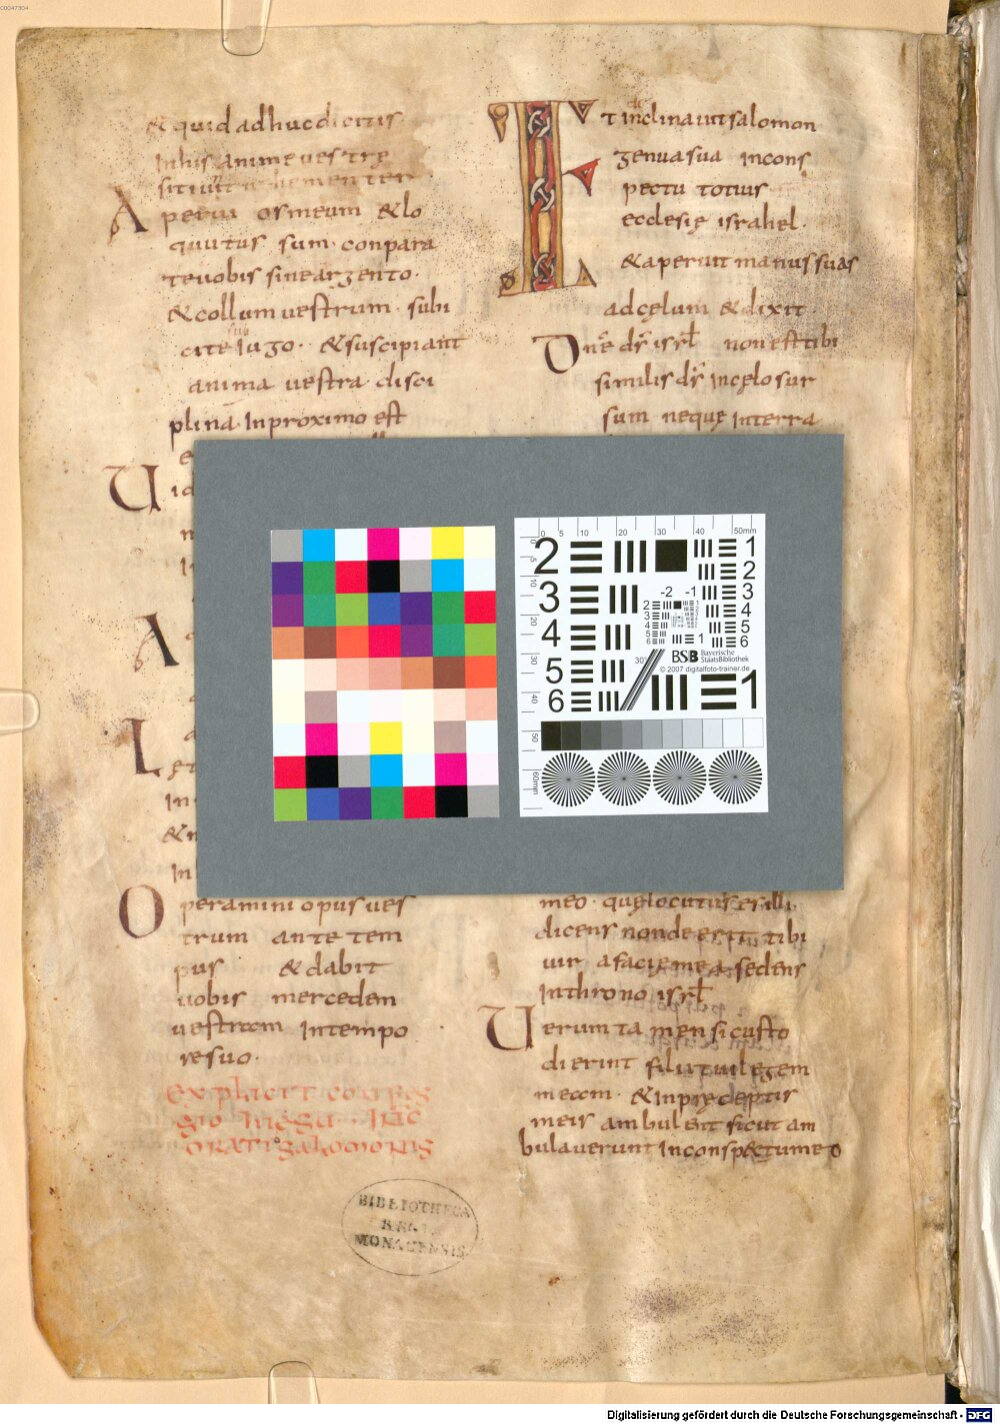 C0047304
& quid adhuc dicitis
Inhis anime uestre
sitiunt uehementer
Aperui os meum &lo
quutus sum conpara
teuobis sineargento
&collum uestrum subi
cite sub iugo &suscipiant
anima uestra disci
plina Inproximo est
Uid
A
L
In
&
In
Operamini opus ues
trum ante tem
pus &dabit
uobis mercedem
uestram Intempo
re suo
Et inclinauit salomon
genua sua incons
pectu totius
ecclesię israhel
&aperuit manus suas
adcęlum &dixit
Dne ds isrl non est tibi
similis ds Incęlo sur
sum nequę Interra
meo quę locutus es illi
dicens non deerit tibi
uir a facie mea sedens
Inthrono isrl
Uerum tamen si custo
dierint filii tui legem
meam &Inpręceptis
meis ambulent sicut am
bulauerunt Inconspectu meo
BIBLIOTHECA
REGIA
MONACENSIS
0 5 10 20 30 40 50mm
2 1
2
3 -2 -1 3
4 4
5 5
6 6
BSB Bayerische
StaatsBibliothek
© 2007 digitalfoto-trainer.de
1
Digitalisierung gefördert durch die Deutsche Forschungsgemeinschaft - DFG